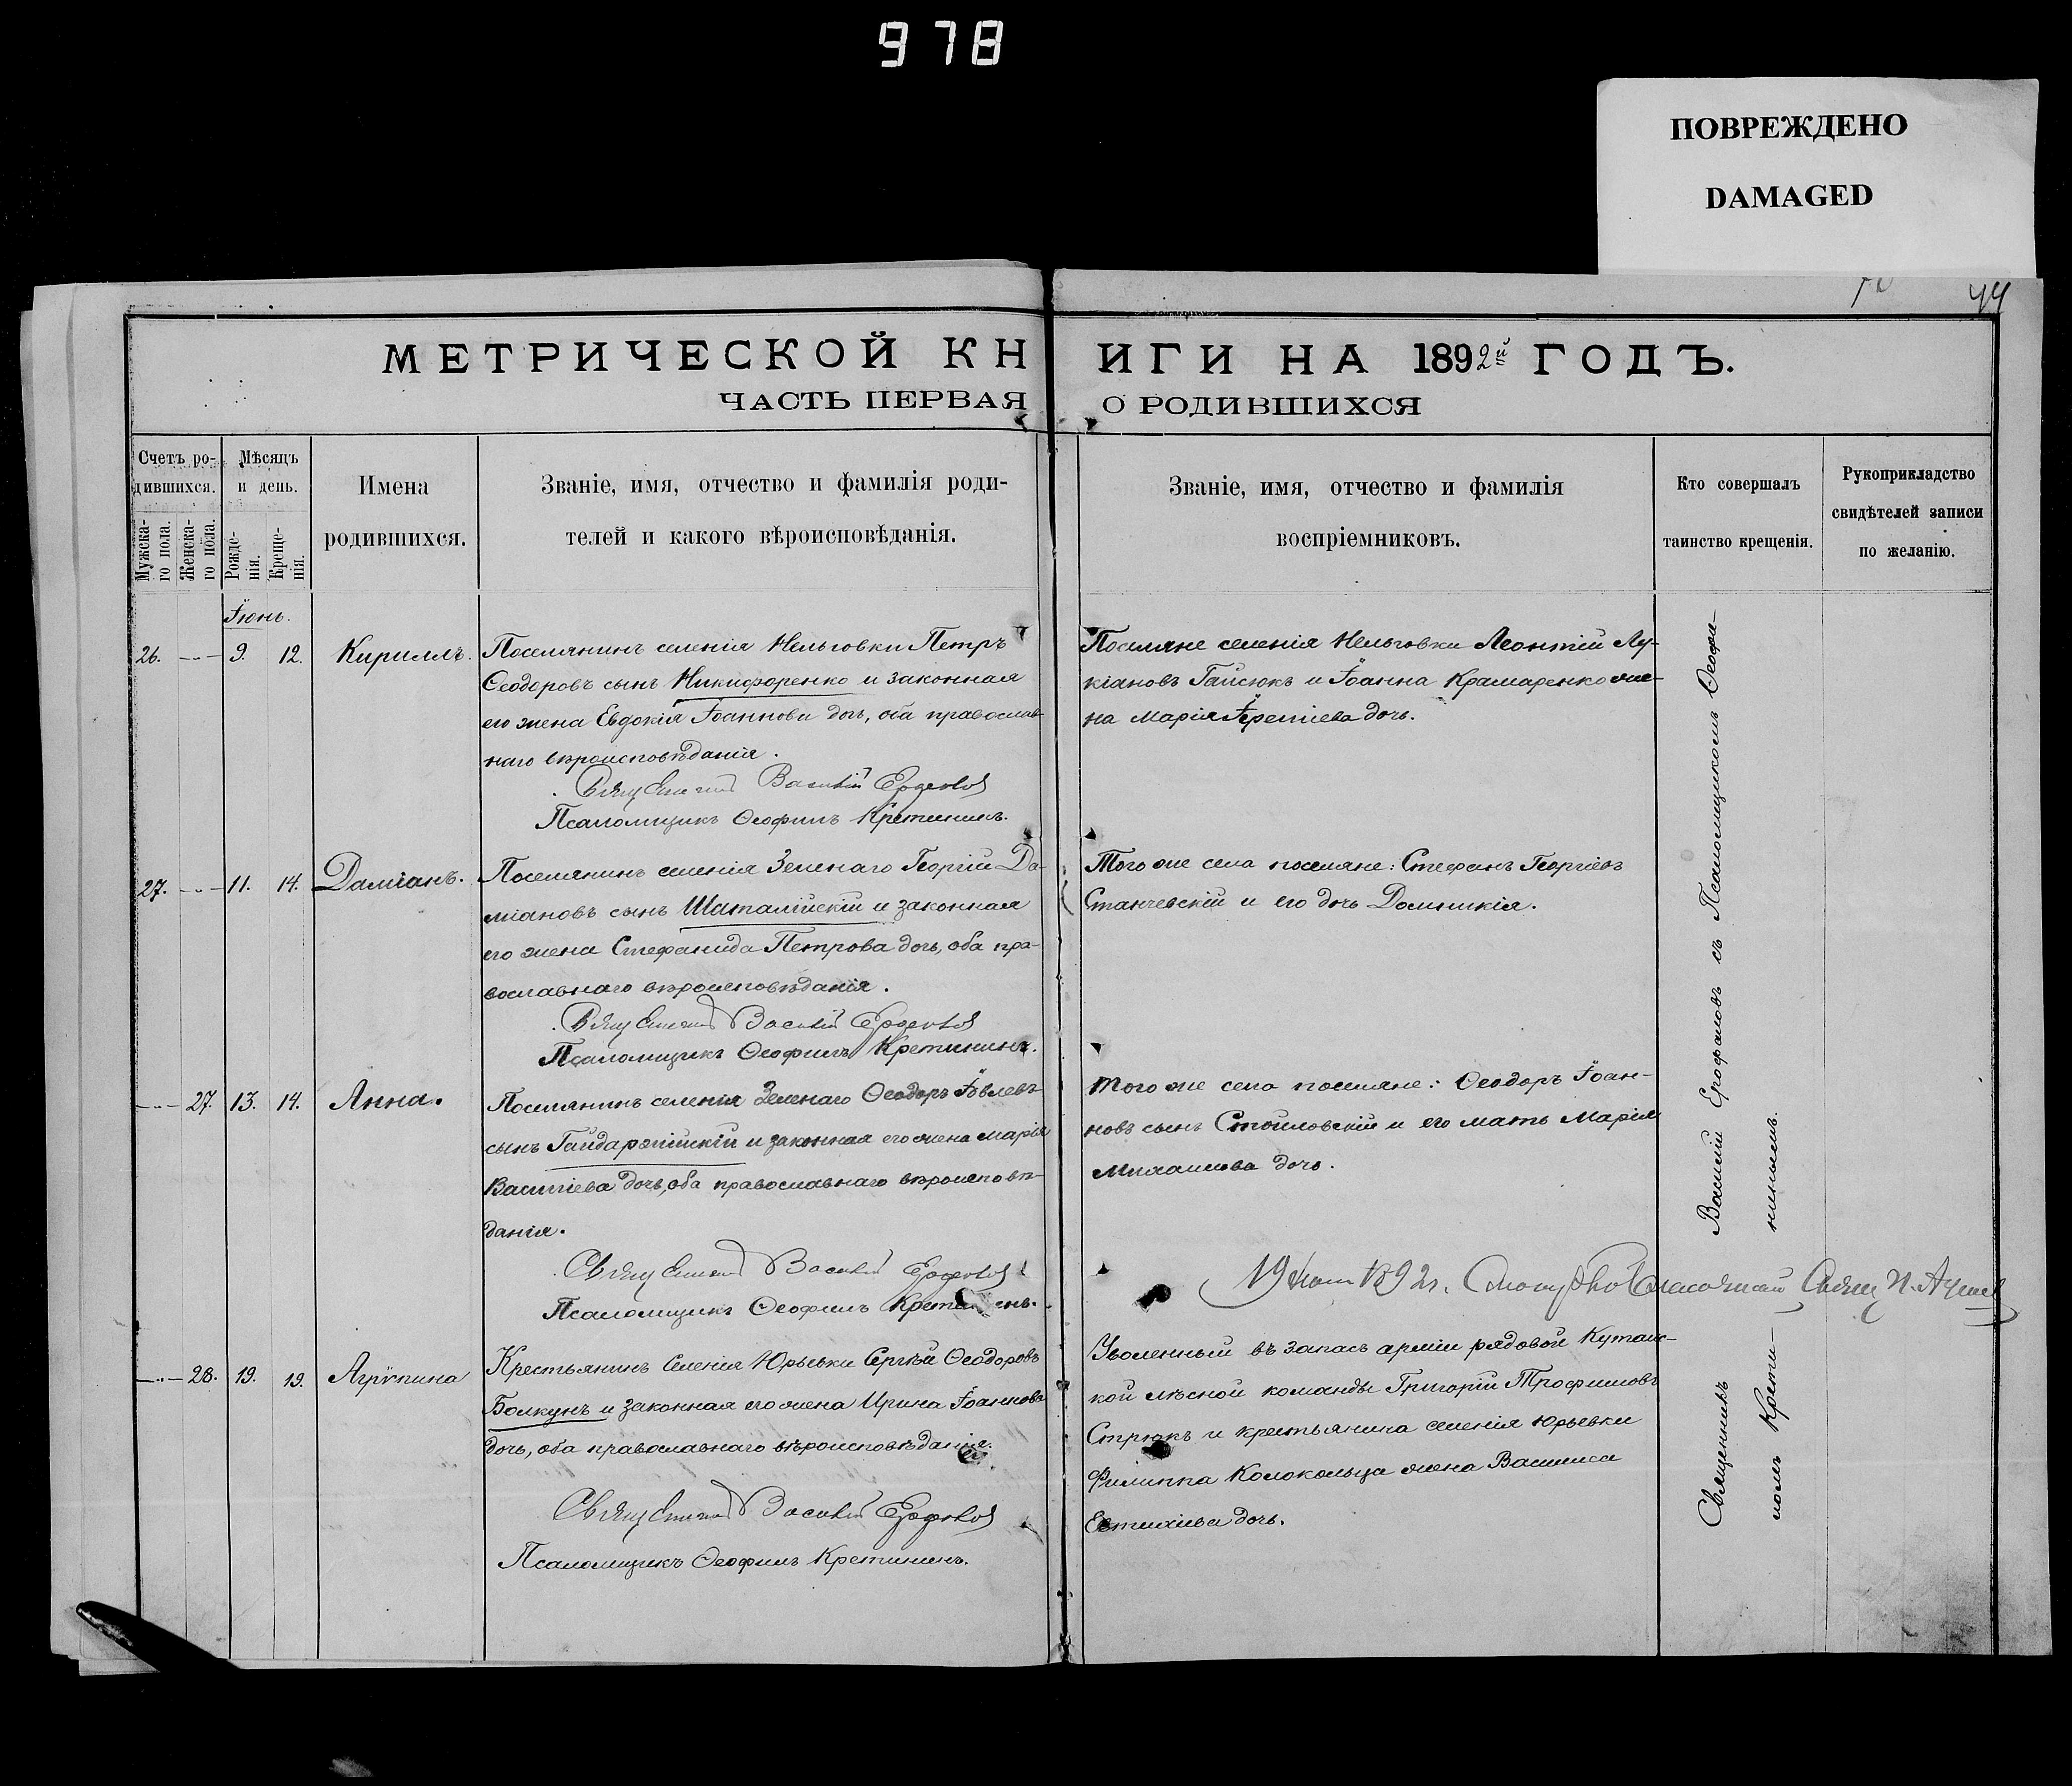 978
ПОВРЕЖДЕНО
DAMAGED
44
МЕТРИЧЕСКОЙ КНИГИ НА 1892й ГОДЪ.
ЧАСТЬ ПЕРВАЯ О РОДИВШИХСЯ
Счетъ ро-
дившихся.
Мужска-
го пола.
Женска-
го пола.
Мѣсяцъ
и день.
Рожде-
нія.
Креще-
нія.
Имена
родившихся.
Званіе, имя, отчество и фамилія роди-
телей и какого вѣроисповѣданія.
Званіе, имя, отчество и фамилія
воспріемниковъ.
Кто совершалъ
таинство крещенія.
Рукоприкладство
свидѣтелей записи
по желанію.
Іюнь.
26. 9. 12. Кириллъ.
Поселянинъ селенія Нельговки Петръ
Ѳеодоровъ сынъ Никифоренко и законная
его жена Евдокія Іоаннова дочь, оба православ-
наго вѣроисповѣданія.
Священникъ Василій
Псаломщикъ Ѳеофилъ Кретининъ.
Поселяне селенія Нельговки Леонтій Лу-
кіановъ Гайсюкъ и Іоанна Крамаренко же-
на Марія дочь.
27. 11. 14. Даміанъ.
Поселянинъ селенія Зеленаго Георгій Да-
міановъ сынъ Шаталійскій и законная
его жена Стефанида Петрова дочь, оба пра-
вославнаго вѣроисповѣданія.
Священникъ Василій
Псаломщикъ Ѳеофилъ Кретининъ.
Того же села поселяне: Стефанъ Георгіевъ
Станчевскій и его дочь Домникія.
27. 13. 14. Анна.
Поселянинъ селенія Зеленаго Ѳеодоръ Іовлевъ
сынъ Гайдаржійскій и законная его жена Марія
Васильева дочь, оба православнаго вѣроисповѣ-
данія.
Священникъ Василій
Псаломщикъ Ѳеофилъ Кретининъ.
Того же села поселяне: Ѳеодоръ Іоан-
новъ сынъ Стоиловскій и его мать Марія
Михаилова дочь.
19 1892г. Свящ П.
28. 19. 19. Агрипина
Крестьянинъ селенія Юрьевки Сергѣй Ѳеодоровъ
Болкунъ и законная его жена Ирина Іоаннова
дочь, оба православнаго вѣроисповѣданія.
Священникъ Василій
Псаломщикъ Ѳеофилъ Кретининъ.
Уволенный въ запасъ арміи рядовой Кутаис-
кой лѣсной команды Григорій Трофимовъ
Стрюкъ и крестьянина селенія Юрьевки
Филиппа Колокольца жена Василиса
Евтихіева дочь.
Священникъ Василій Ерофаловъ съ Псаломщикомъ Ѳеофи-
ломъ Крети-
нинымъ.